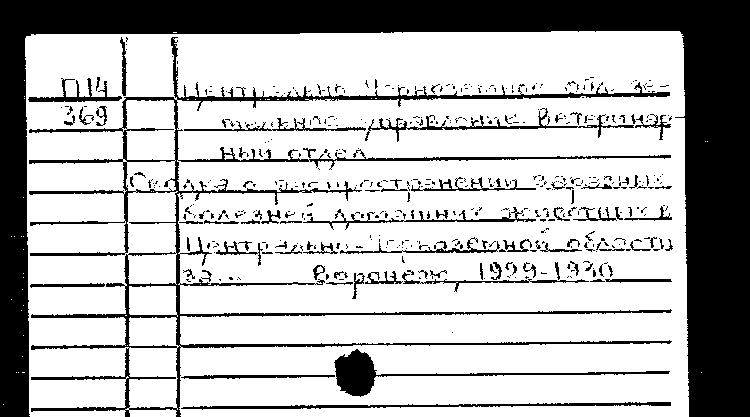 П14
369
Центрально-Черноземное обл. зе-
мельное управление. Ветеринар
ный отдел
Сводка о распространении заразных
болезней домашних животных в
Центрально-Черноземной области
за... Воронеж, 1929-1930